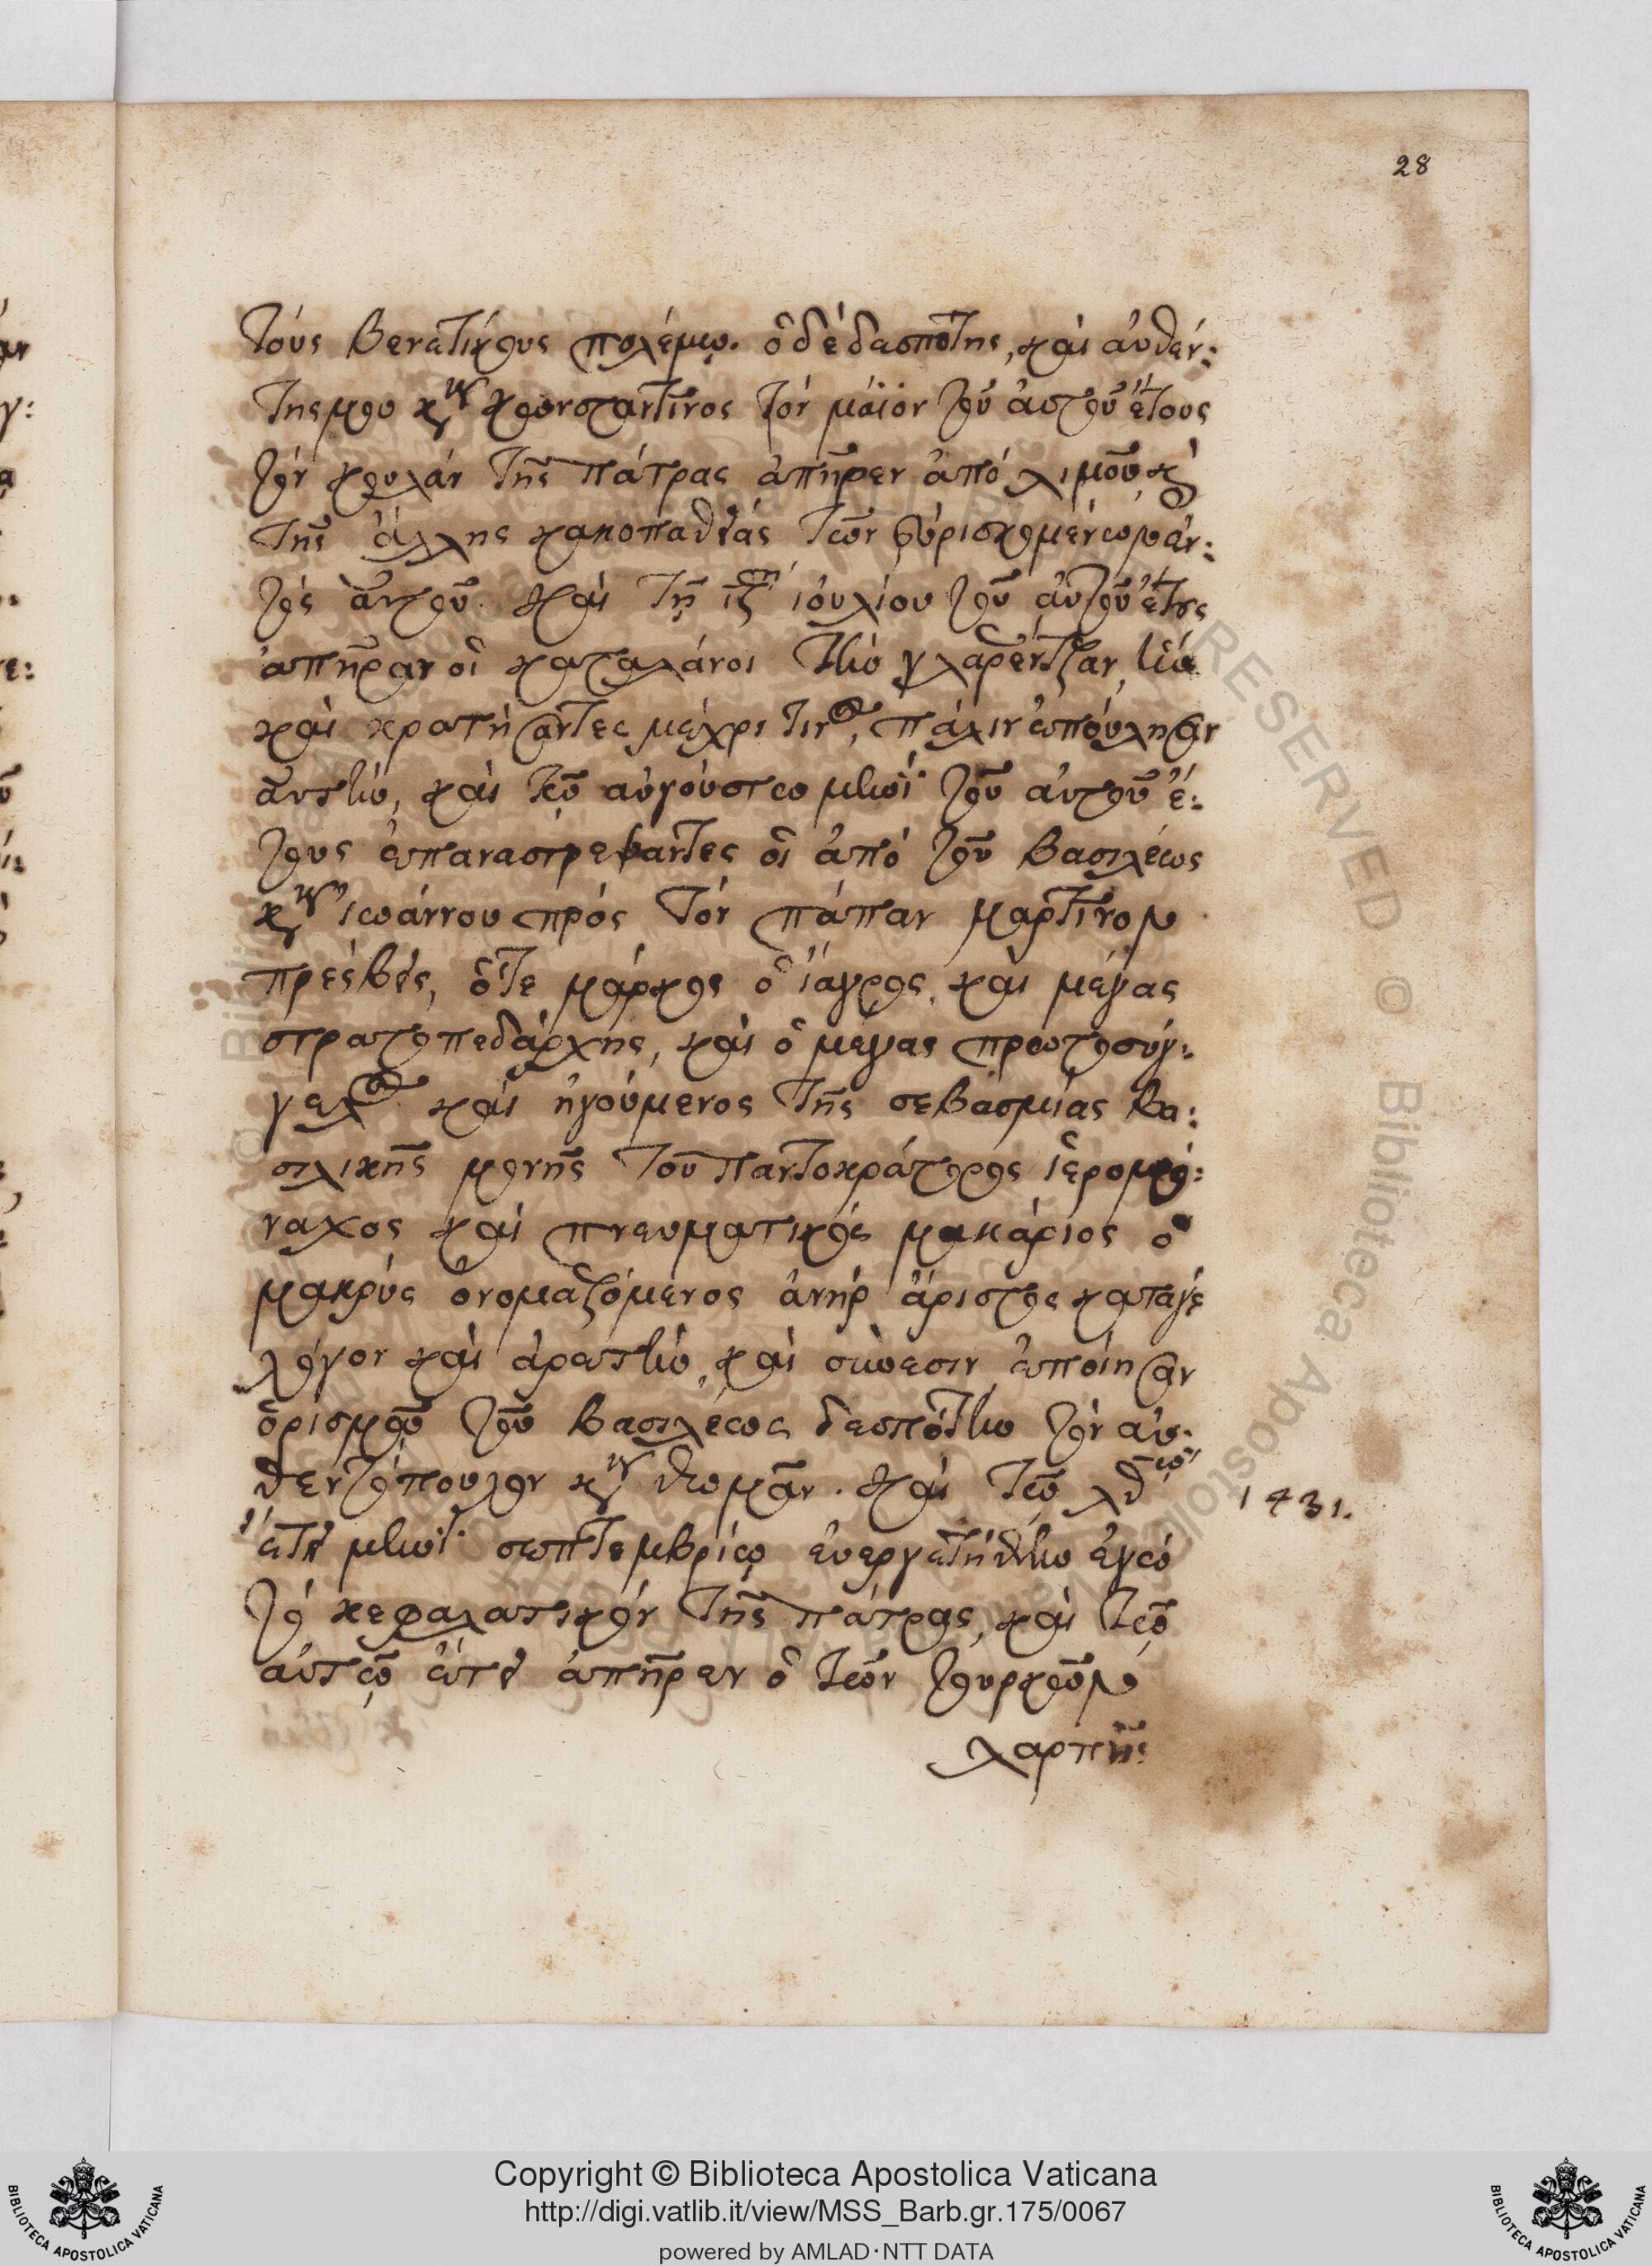 28
τοὺς βενετίκους πολέμῳ. ὁ δὲ δεσπότης, καὶ αὐθέν:
της μου κὺρ κωνσταντῖνος τὸν μάϊον τοῦ αὐτοῦ ἔτους
τὸν κουλᾶν τῆς πάτρας ἐπῆρεν ἀπὸ λιμοῦ καὶ
τῆς ἄλλης κακοπαθείας τῶν εὑρισκομένων ἐν:
τὸς αὐτοῦ. καὶ τῇ ιζῃ ἰουλίου τοῦ αὐτοῦ ἔτους
ἐπῆραν οἱ καταλάνοι τὴν γλαρέντζαν,
καὶ κρατήσαντες μέχρι τινὸς, πάλιν ἐπούλησαν
αὐτὴν, καὶ τῷ αὐγούστῳ μηνὶ τοῦ αὐτοῦ ἔ:
τους ἐπαναστρέψαντες οἱ ἀπὸ τοῦ βασιλέως
κὺρ ἰωάννου πρὸς τὸν πάπαν μαρτῖνον
πρέσβεις, ὅτε μάρκος ὁ ἴαγρος, καὶ μέγας
στρατοπεδάρχης, καὶ ὁ μέγας πρωτοσύγ:
γελος καὶ ἡγούμενος τῆς σεβασμίας βα:
σιλικῆς μονῆς τοῦ παντοκράτορος ἱερομό:
ναχος καὶ πνευματικὸς μακάριος ὁ
μακρὺς ὀνομαζόμενος ἀνὴρ ἄριστος κατάγε
λόγον καὶ ἀρετὴν, καὶ σύνεσιν, ἐποίησαν
ὁρισμοῦ τοῦ βασιλέως δεσπότην τὸν αὐ:
θεντόπουλον κὺρ θωμᾶν. καὶ τῷ λθῳ
1431.
ἔτει μηνὶ σεπτεμβρίῳ εὐεργετήθην ἐγὼ
τὸ κεφαλατικὸν τῆς πάτρας, καὶ τῷ
αὐτῷ ἔτει ἐπῆρεν ὁ τῶν τουρκῶν
Copyright © Biblioteca Apostolica Vaticana
http://digi.vatlib.it/view/MSS_Barb.gr.175/0067
powered by AMLAD·NTT DATA
BIBLIOTECA APOSTOLICA VATICANA
BIBLIOTECA APOSTOLICA VATICANA